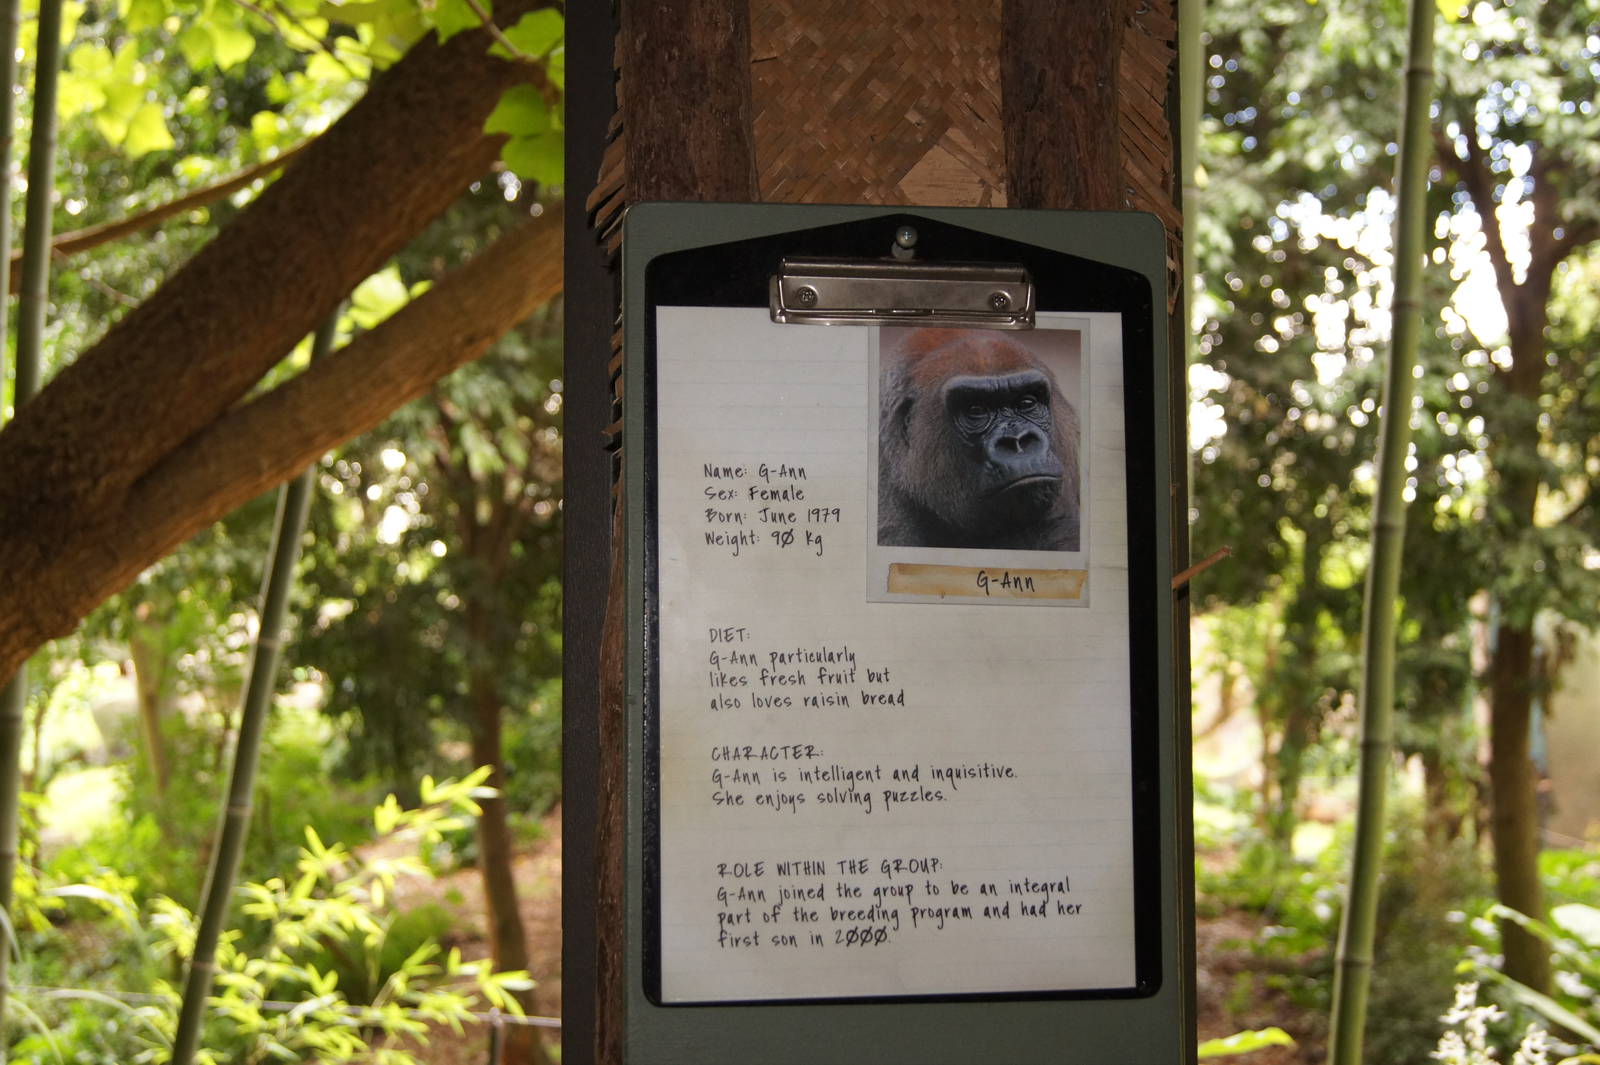 Name: G-Ann
Sex: Female
Born: June 1979
Weight: 90 kg
G-Ann
DIET:
G-Ann particularly
likes fresh fruit but
also loves raisin bread
CHARACTER:
G-Ann is intelligent and inquisitive.
She enjoys solving puzzles.
ROLE WITHIN THE GROUP:
G-Ann joined the group to be an integral
part of the breeding program and had her
first son in 2000.